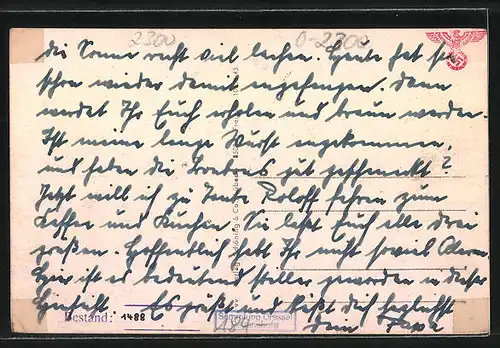 2300 0-2300
die Sonne recht viel lachen. Heute hat sie
schon wieder damit angefangen. Dann
werdet Ihr Euch erholen und braun werden.
Ist meine lange Wurst angekommen,
und haben die gut geschmeckt?
Jetzt will ich zu Tante Roloff fahren zum
Kaffee und Kuchen. Sie läßt Euch alle drei
grüßen. Hoffentlich habt Ihr nicht soviel
Hier ist es bedeutend stiller geworden in dieser
Hinsicht. Es grüßt und küßt Dich herzlichst
Dein Papa
Bestand: 1488
184